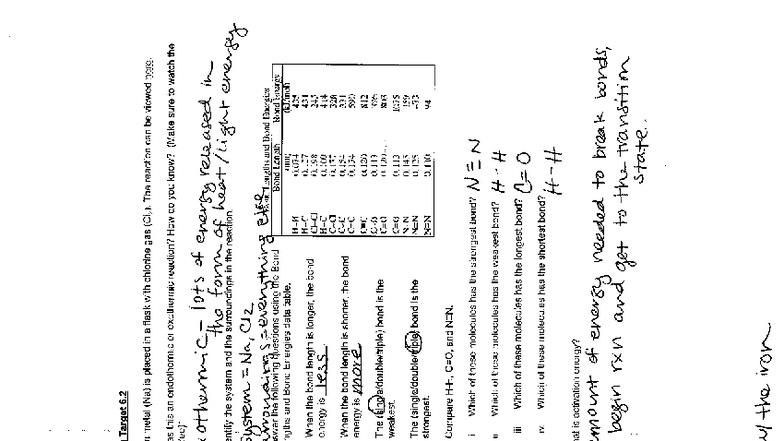 Target 6.2
metal (Na) is placed in a flask with chlorine gas (Cl₂). The reaction can be viewed here.
this an endothermic or exothermic reaction? How do you know? (Make sure to watch the
othermic - lots of energy released in
the form of heat/light energy
identify the system and the surroundings in the reaction.
system = Na, Cl2
surroundings = everything else
answer the following questions using the Bond
Lengths and Bond Energies data table.
Lengths and Bond Energies
Bond Length
Bond Energy
H-H 0.074 435
H-C 431
Cl-Cl
H-C 414
C-Cl
C-C 0.154 331
C=C 0.134 590
C≡C 0.120 812
C-O
C=O
C≡O 0.113 1075
N-N 0.145 159
N=N 0.125
N≡N 0.110 94
When the bond length is longer, the bond
energy is less
When the bond length is shorter, the bond
energy is more
The (single/double/triple) bond is the
weakest.
The (single/double/triple) bond is the
strongest.
Compare H-H, C=O, and N≡N.
i Which of these molecules has the strongest bond? N≡N
ii Which of these molecules has the weakest bond? H-H
iii Which of these molecules has the longest bond? C=O
iv. Which of these molecules has the shortest bond? H-H
hat is activation energy?
mount of energy needed to break bonds,
begin rxn and get to the transition
state.
the iron